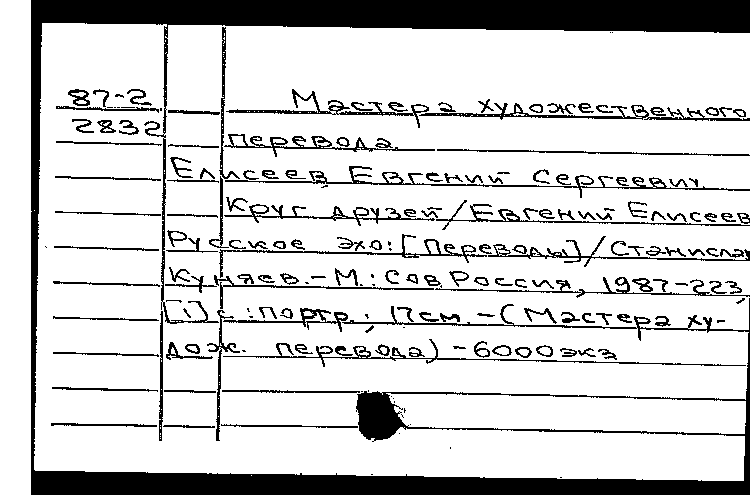 87-2 Мастера художественного
2832 перевода.
Елисеев Евгений Сергеевич.
Круг друзей/Евгений Елисеев
Русское эхо:[Переводы]/Станислав
Куняев.-М.:Сов Россия, 1987-223,
[1]с.:портр.; 17см.-(Мастера ху-
дож. перевода)-6000экз